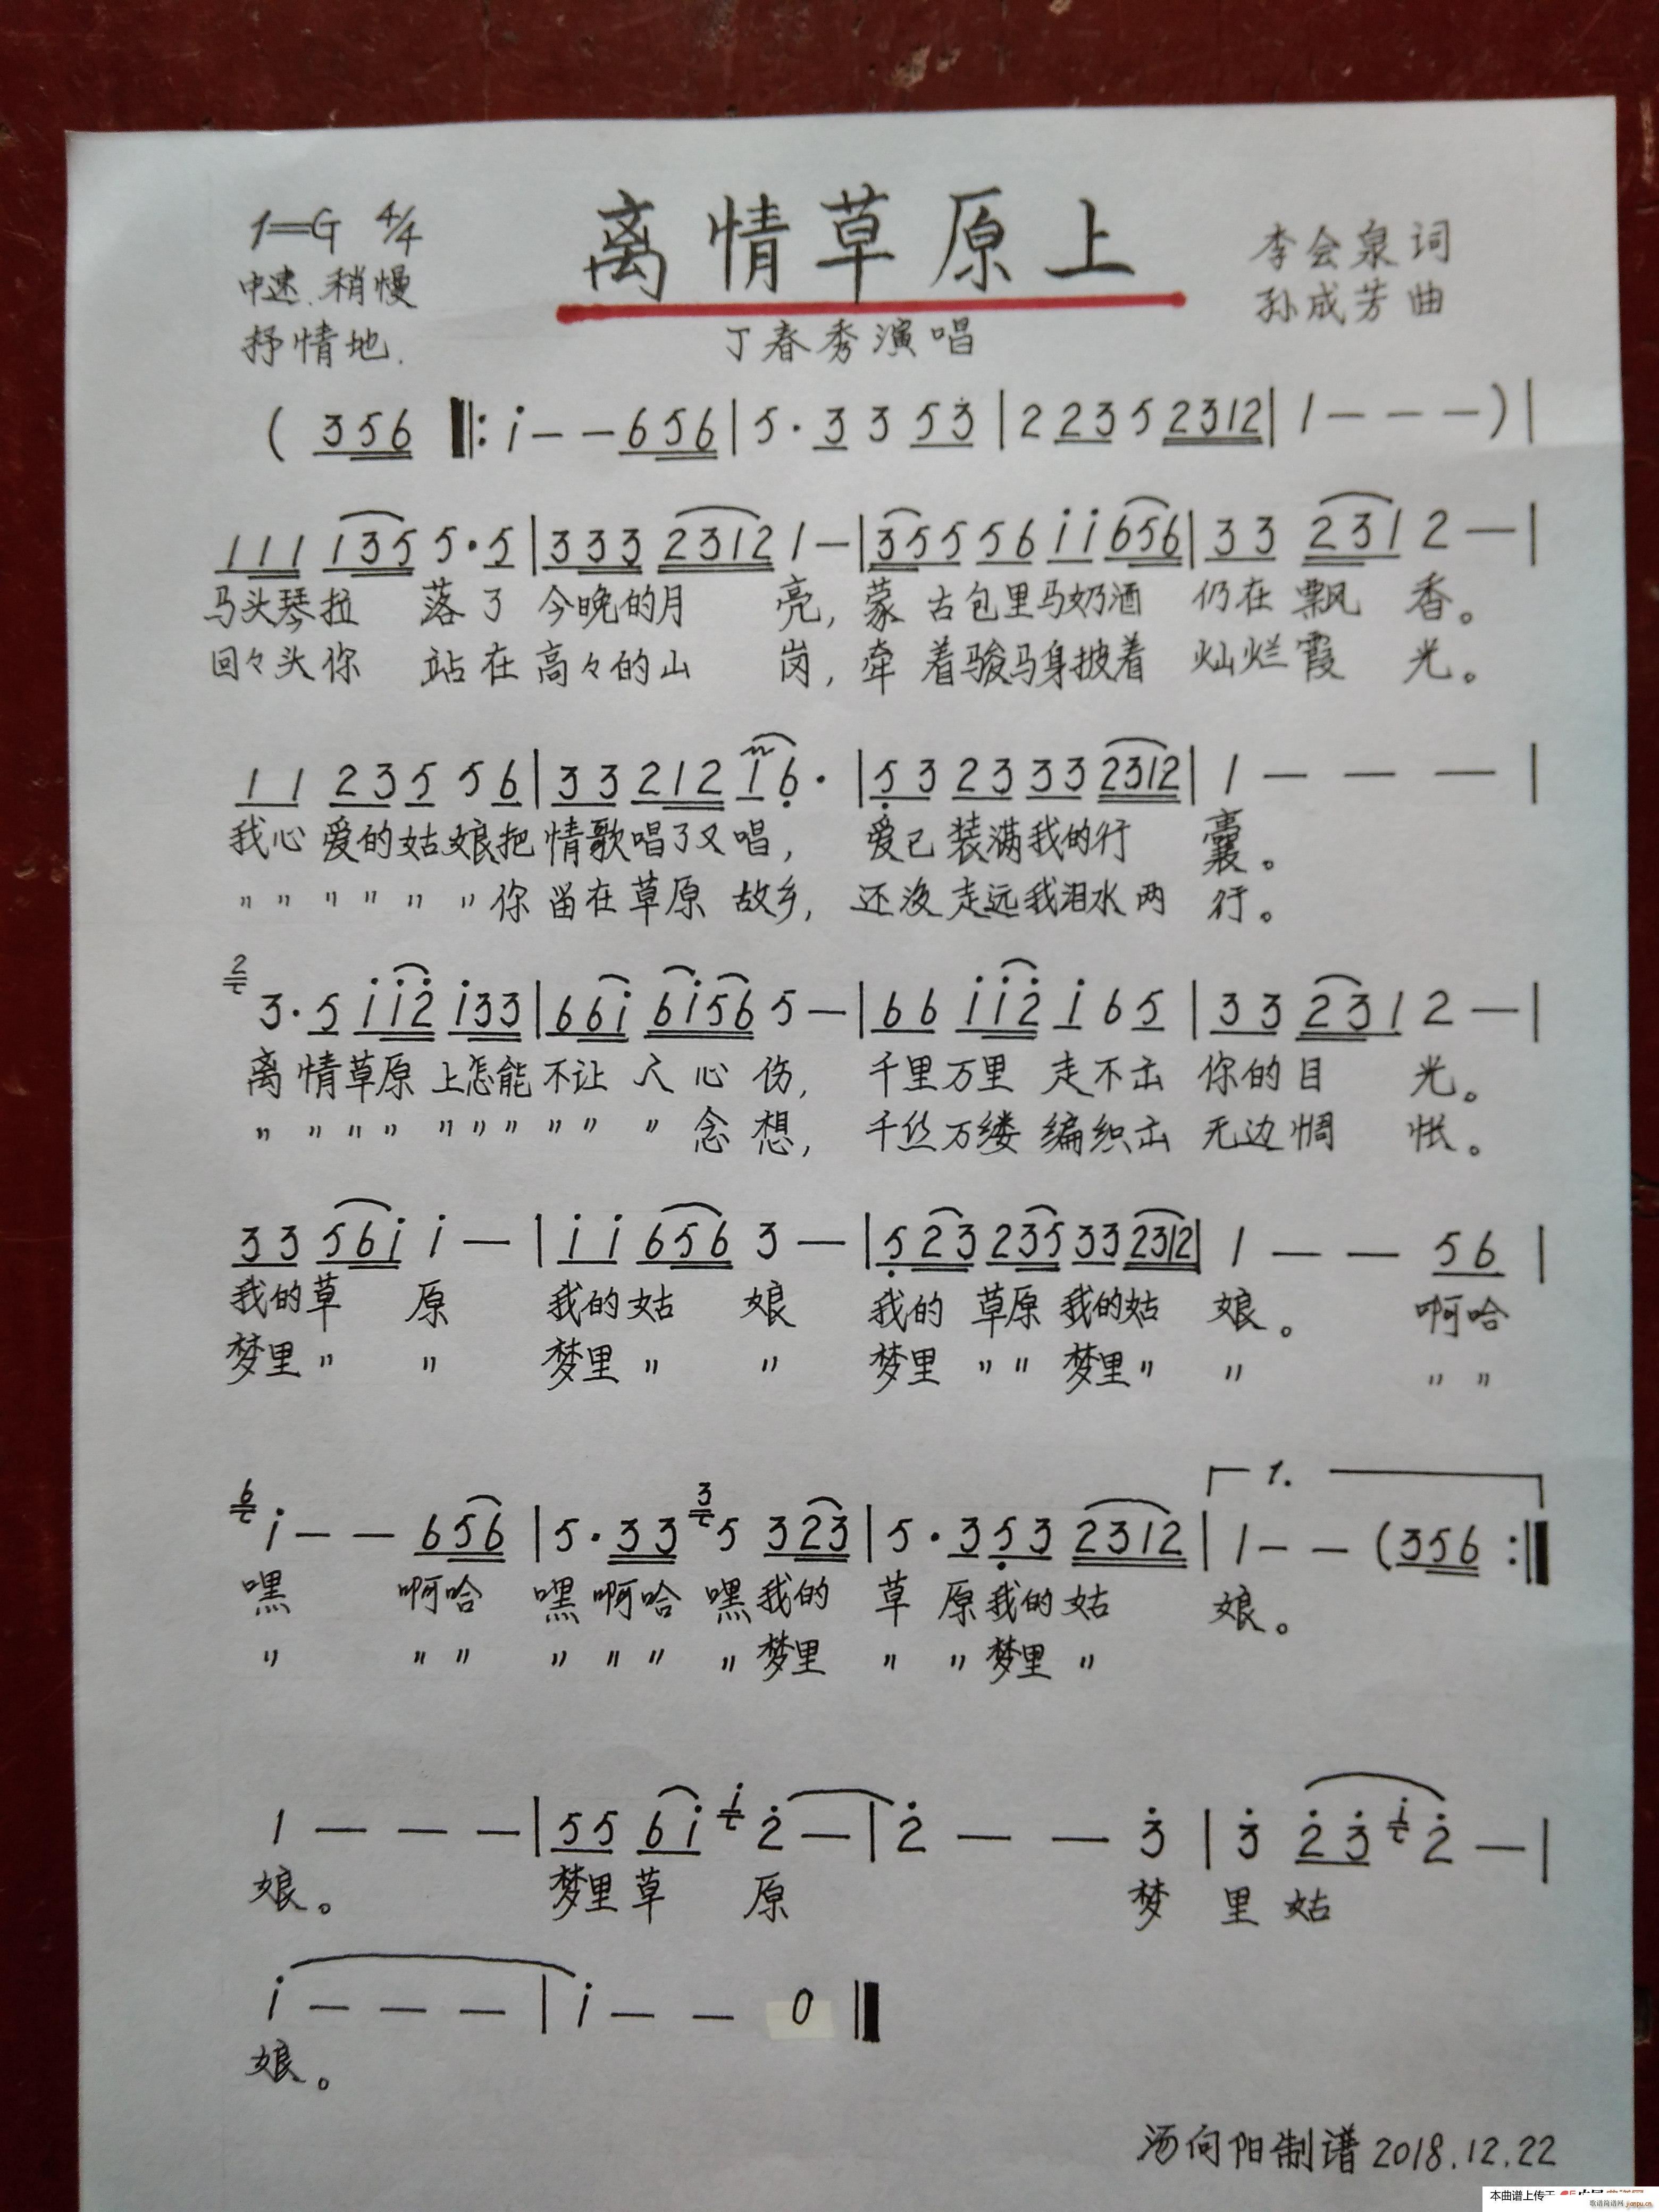 离情草原上
1=G 4/4
中速.稍慢
抒情地.
李会泉词
孙成芳曲
丁春秀演唱
( 356 ‖: i - - 656 | 5 · 3 3 53 | 2 223 5 2312 | 1 - - - ) |
111 135 5·5 | 333 2312 1 - | 355 56 ii 656 | 33 231 2 - |
马头琴拉 落了 今晚的月 亮，蒙古包里马奶酒 仍在飘 香。
回々头你 站在高々的山 岗，牵着骏马身披着 灿烂霞 光。
11 235 56 | 33 212 16· | 53 23 33 2312 | 1 - - - |
我心爱的姑娘把情歌唱了又唱， 爱已装满我的行 囊。
〃〃〃〃〃〃你留在草原故乡，还没走远我泪水两 行。
2 3·5 ii2 i33 | 66i 6i56 5 - | 66 ii2 i 65 | 33 231 2 - |
离情草原上怎能不让人心伤， 千里万里走不出 你的目 光。
〃〃〃〃〃〃〃〃〃〃念想， 千丝万缕编织出 无边惆 怅。
33 56i i - | ii 656 3 - | 523 235 33 2312 | 1 - - 56 |
我的草 原 我的姑 娘 我的草原我的姑 娘。 啊哈
梦里〃 〃 梦里〃 〃 梦里〃〃梦里〃 〃 〃〃
6 i - - 656 | 5·33 3 5 323 | 5·3 53 2312 | 1. 1 - - (356 :‖
嘿 啊哈 嘿啊哈嘿我的 草原我的姑 娘。
〃 〃〃 〃〃〃〃梦里 〃〃梦里〃
1 - - - | 55 6i i 2 - | 2 - - 3 | 3 23 i 2 - |
娘。 梦里草 原 梦 里姑
i - - - | i - - 0 ‖
娘。
汤向阳制谱2018.12.22
本曲谱上传于